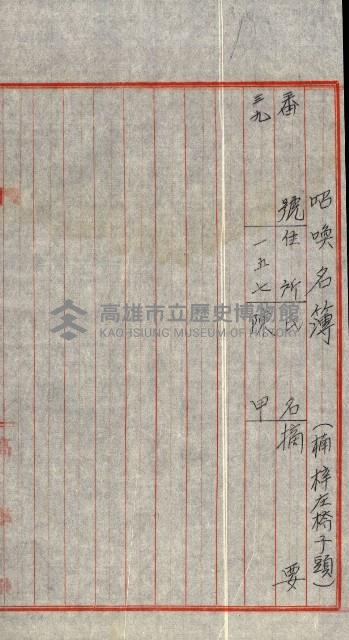 昭喚名簿(楠梓左楕子頭)
番號 住所 氏名 摘要
三九 一五七 陳甲
高雄市立歷史博物館
KAOHSIUNG MUSEUM OF HISTORY